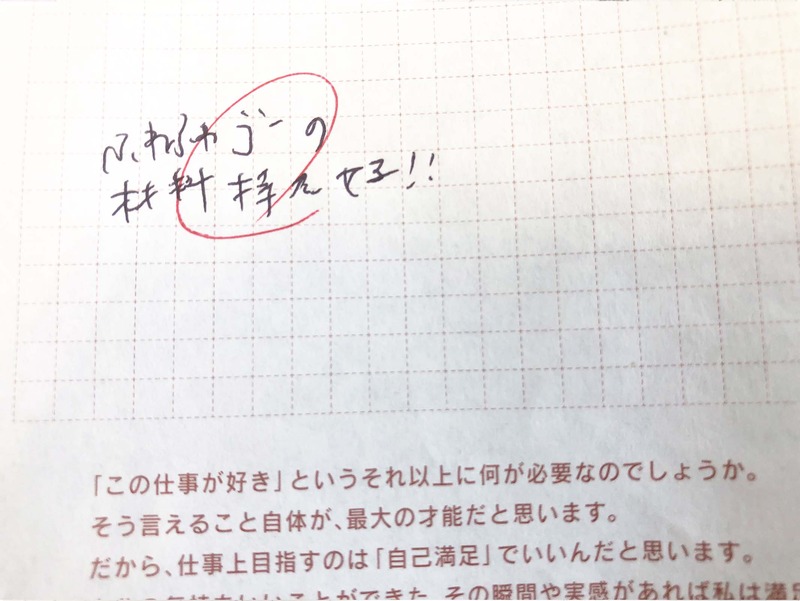 ふわふわ の
材料 揃え !!
「この仕事が好き」というそれ以上に何が必要なのでしょうか。
そう言えること自体が、最大の才能だと思います。
だから、仕事上目指すのは「自己満足」でいいんだと思います。
の気持ちいいことができた、その瞬間や実感があれば私は満足